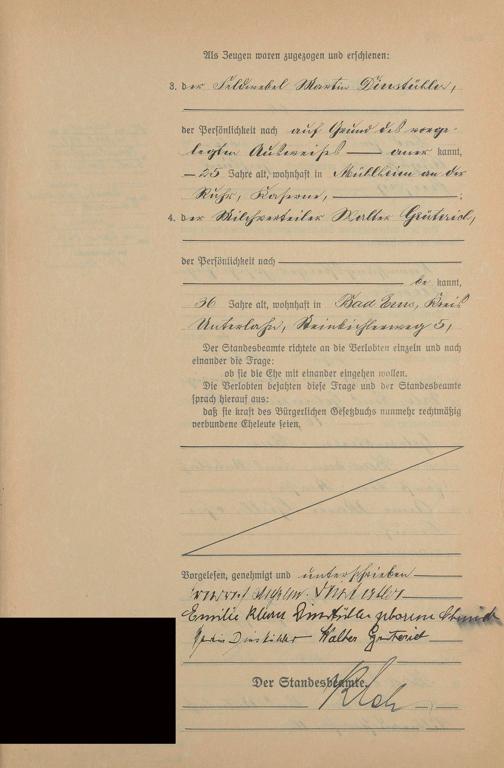 Als Zeugen waren zugezogen und erschienen:
3. der Feldwebel Martin Dinstühler,
der Persönlichkeit nach auf Grund des vorge-
legten Ausweises — aner kannt,
— 25 Jahre alt, wohnhaft in Mülheim an der
Ruhr, Kaserne, — ;
4. der Milchverteiler Walter
der Persönlichkeit nach —
— be kannt,
36 Jahre alt, wohnhaft in Bad Ems, Kreis
Unterlahn, 5,
Der Standesbeamte richtete an die Verlobten einzeln und nach
einander die Frage:
ob sie die Ehe mit einander eingehen wollen.
Die Verlobten bejahten diese Frage und der Standesbeamte
sprach hierauf aus:
daß sie kraft des Bürgerlichen Gesetzbuchs nunmehr rechtmäßig
verbundene Eheleute seien.
Vorgelesen, genehmigt und unterschrieben —
Emilie Klara Dinstühler geborene Schmidt
Dinstühler Walter
Der Standesbeamte.